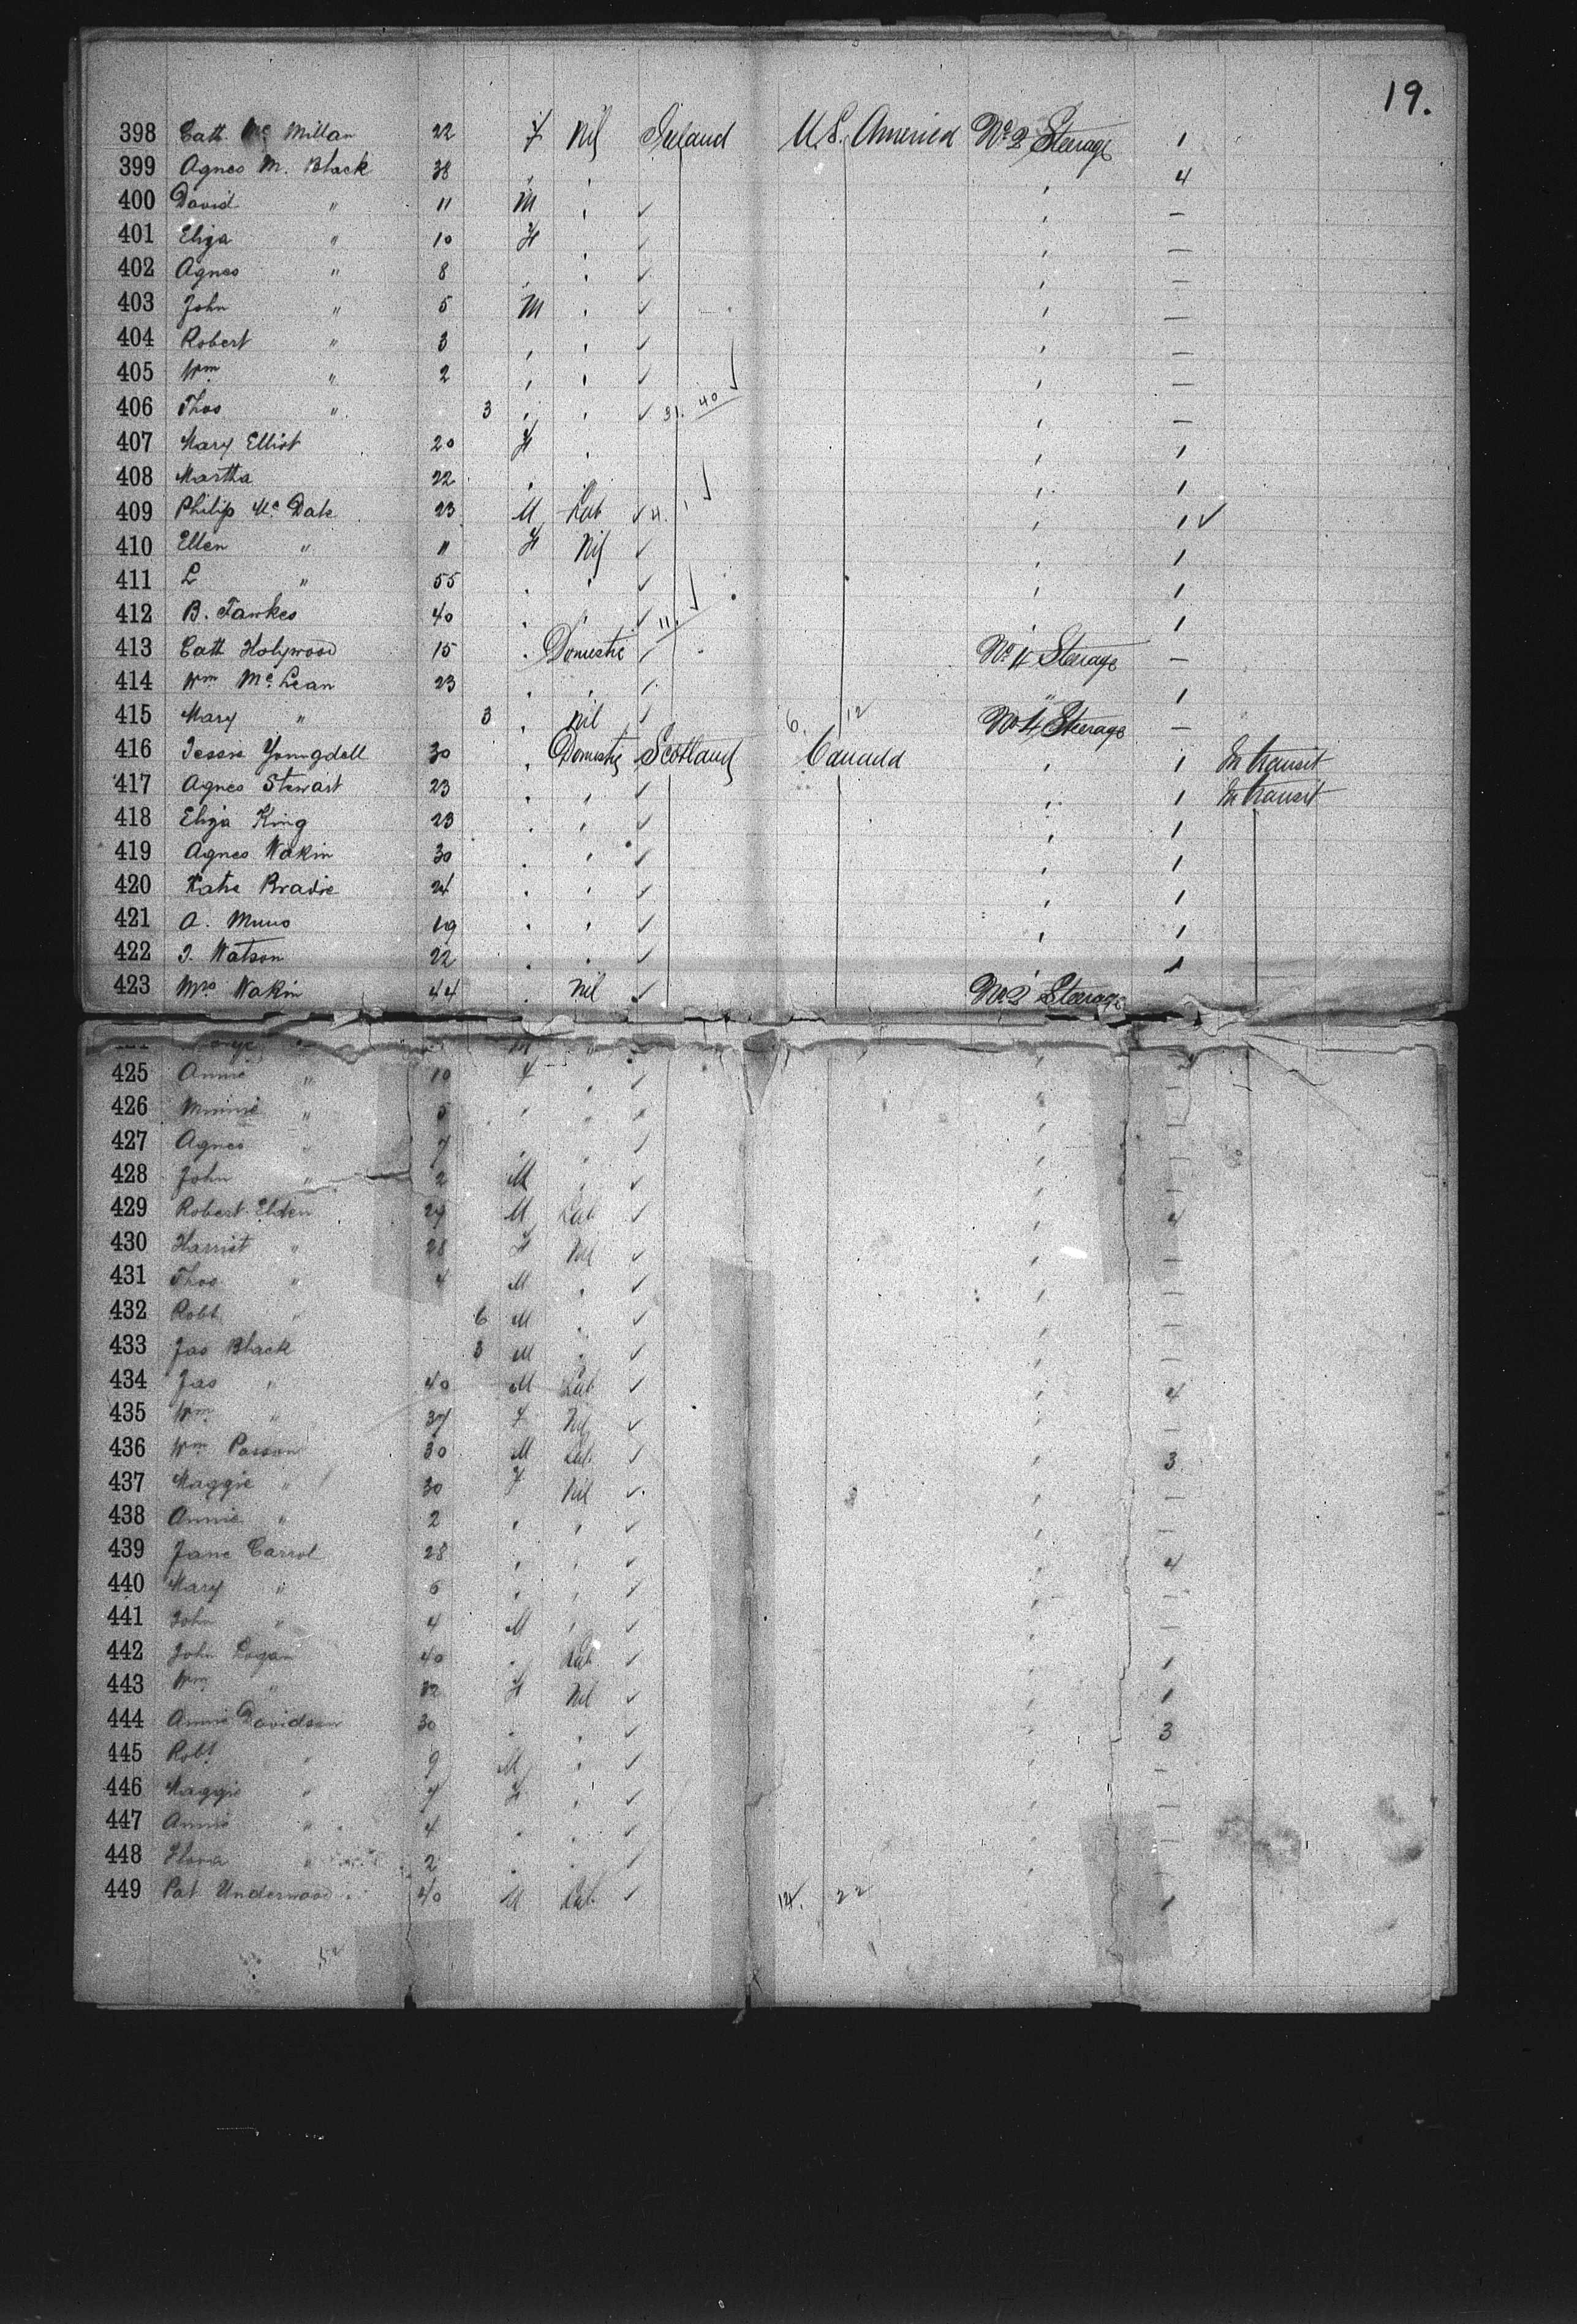 19.
398 Cath Mc Millan 22 F Nil Ireland U.S. America No 2 Steerage 1
399 Agnes M. Black 38 , , , 4
400 David " 11 M , ✓ , —
401 Eliza " 10 F ✓ , —
402 Agnes " 8 , , ✓ , —
403 John " 5 M , ✓ , —
404 Robert " 3 , , ✓ , —
405 Wm " 2 , , ✓ , —
406 Thos " 3 , , ✓ 31. 40 , —
407 Mary Elliot 20 F , , 1
408 Martha 22 , , 1
409 Philip Mc Dale 23 M Lab ✓ 4. 1 , 1 ✓
410 Ellen " 11 F Nil ✓ , 1
411 L " 55 . , ✓ , 1
412 B. Fawkes 40 . , ✓ 11. , 1
413 Cath Holywood 15 . Domestic ✓ No 4 Steerage —
414 Wm McLean 23 , , ✓ " 1
415 Mary " 3 , Nil ✓ 6. 12 No 4 Steerage —
416 Jessie Youngdell 30 . Domestic Scotland Canada , 1 In transit
417 Agnes Stewart 23 . , ✓ , 1 In transit
418 Eliza King 23 . , ✓ , 1
419 Agnes Wakin 30 . , ✓ , 1
420 Katie Bradie 24 . , ✓ , 1
421 A. Muus 19 . , ✓ , 1
422 J. Watson 22 . . ✓ , 1
423 Mrs Wakin 44 . Nil ✓ No 2 Steerage
M
425 Annie " 10 F , ✓ , —
426 Minnie " 5 , , ✓ , —
427 Agnes " 7 , , ✓ , —
428 John " 2 M , ✓ , —
429 Robert Elden 27 M Lab ✓ , 4
430 Harriet " 28 F Nil ✓ , —
431 Thos " 4 M , ✓ , —
432 Robt " 6 M . ✓ , —
433 Jas Black 3 M . ✓ , —
434 Jas " 40 M Lab ✓ , 4
435 Wm " 37 F Nil ✓ , —
436 Wm Passon 30 M Lab ✓ , 3
437 Maggie " 30 F Nil ✓ , —
438 Annie " 2 , , ✓ , —
439 Jane Carrol 28 , , ✓ , 4
440 Mary " 6 , , ✓ , —
441 John " 4 M , ✓ , —
442 John Logan 40 . Lab ✓ , 1
443 Wm " F Nil ✓ , 1
444 Annie Davidson 30 . . ✓ , 3
445 Robt " 9 M , ✓ , —
446 Maggie " 7 F , ✓ , —
447 Annie " 4 . . ✓ , —
448 Flora " 2 . . ✓ , —
449 Pat Underwood 40 M Lab ✓ 14. 22 1